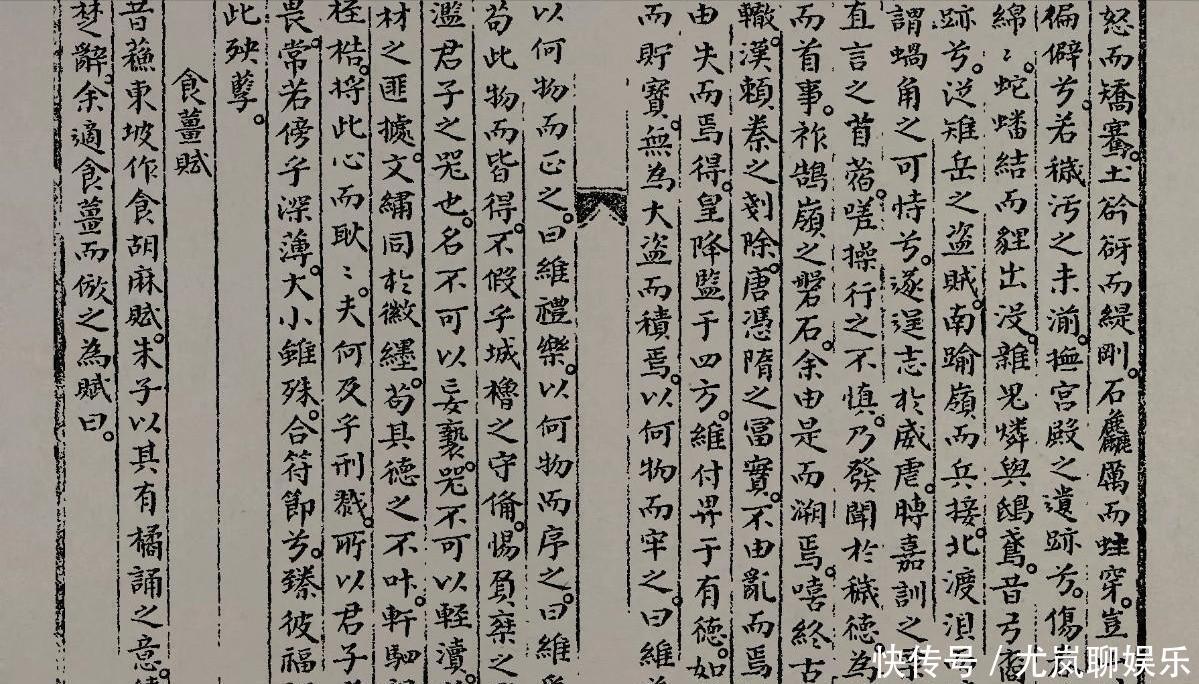 怒而矯騫。土硌砑而緹剛。石麤厲而蛙穿。豈
偏僻兮。若穢汚之未湔。撫宮殿之遺跡兮。傷
綿〻。蛇蟠結而貍出没。雜鬼燐與鴟鳶。昔弓裔
跡兮。泣雉岳之盗賊。南踰嶺而兵接。北渡浿
謂蝸角之可恃兮。遂逞志於威虐。聘嘉訓之
直言之苜蓿。嗟操行之不愼。乃發聞於穢德。為
而首事。祚鵠嶺之磐石。余由是而溯焉。嘻終古
轍。漢賴秦之剗除。唐憑隋之富實。不由亂而焉
由失而焉得。皇降監于四方。維付畀于有德。如
而貯寶。無為大盗而積焉。以何物而牢之。曰維
以何物而正之。曰維禮樂。以何物而序之。曰維
苟此物而皆得。不假乎城櫓之守俻。惕負棄之
濫君子之咒也。名不可以妄褻。咒不可以輕瀆
材之匪據。文繡同於徽纆。苟具德之不叶。軒駟
桎梏。捋此心而耿〻。夫何及乎刑戮。所以君子
畏。常若傍乎深薄。大小雖殊。合符節兮。臻彼福
此殃孽。
食薑賦
昔蘓東坡作食胡麻賦。朱子以其有橘誦之意。
楚辭。余適食薑而倣之為賦曰。
快传号 / 尤岚聊娱乐